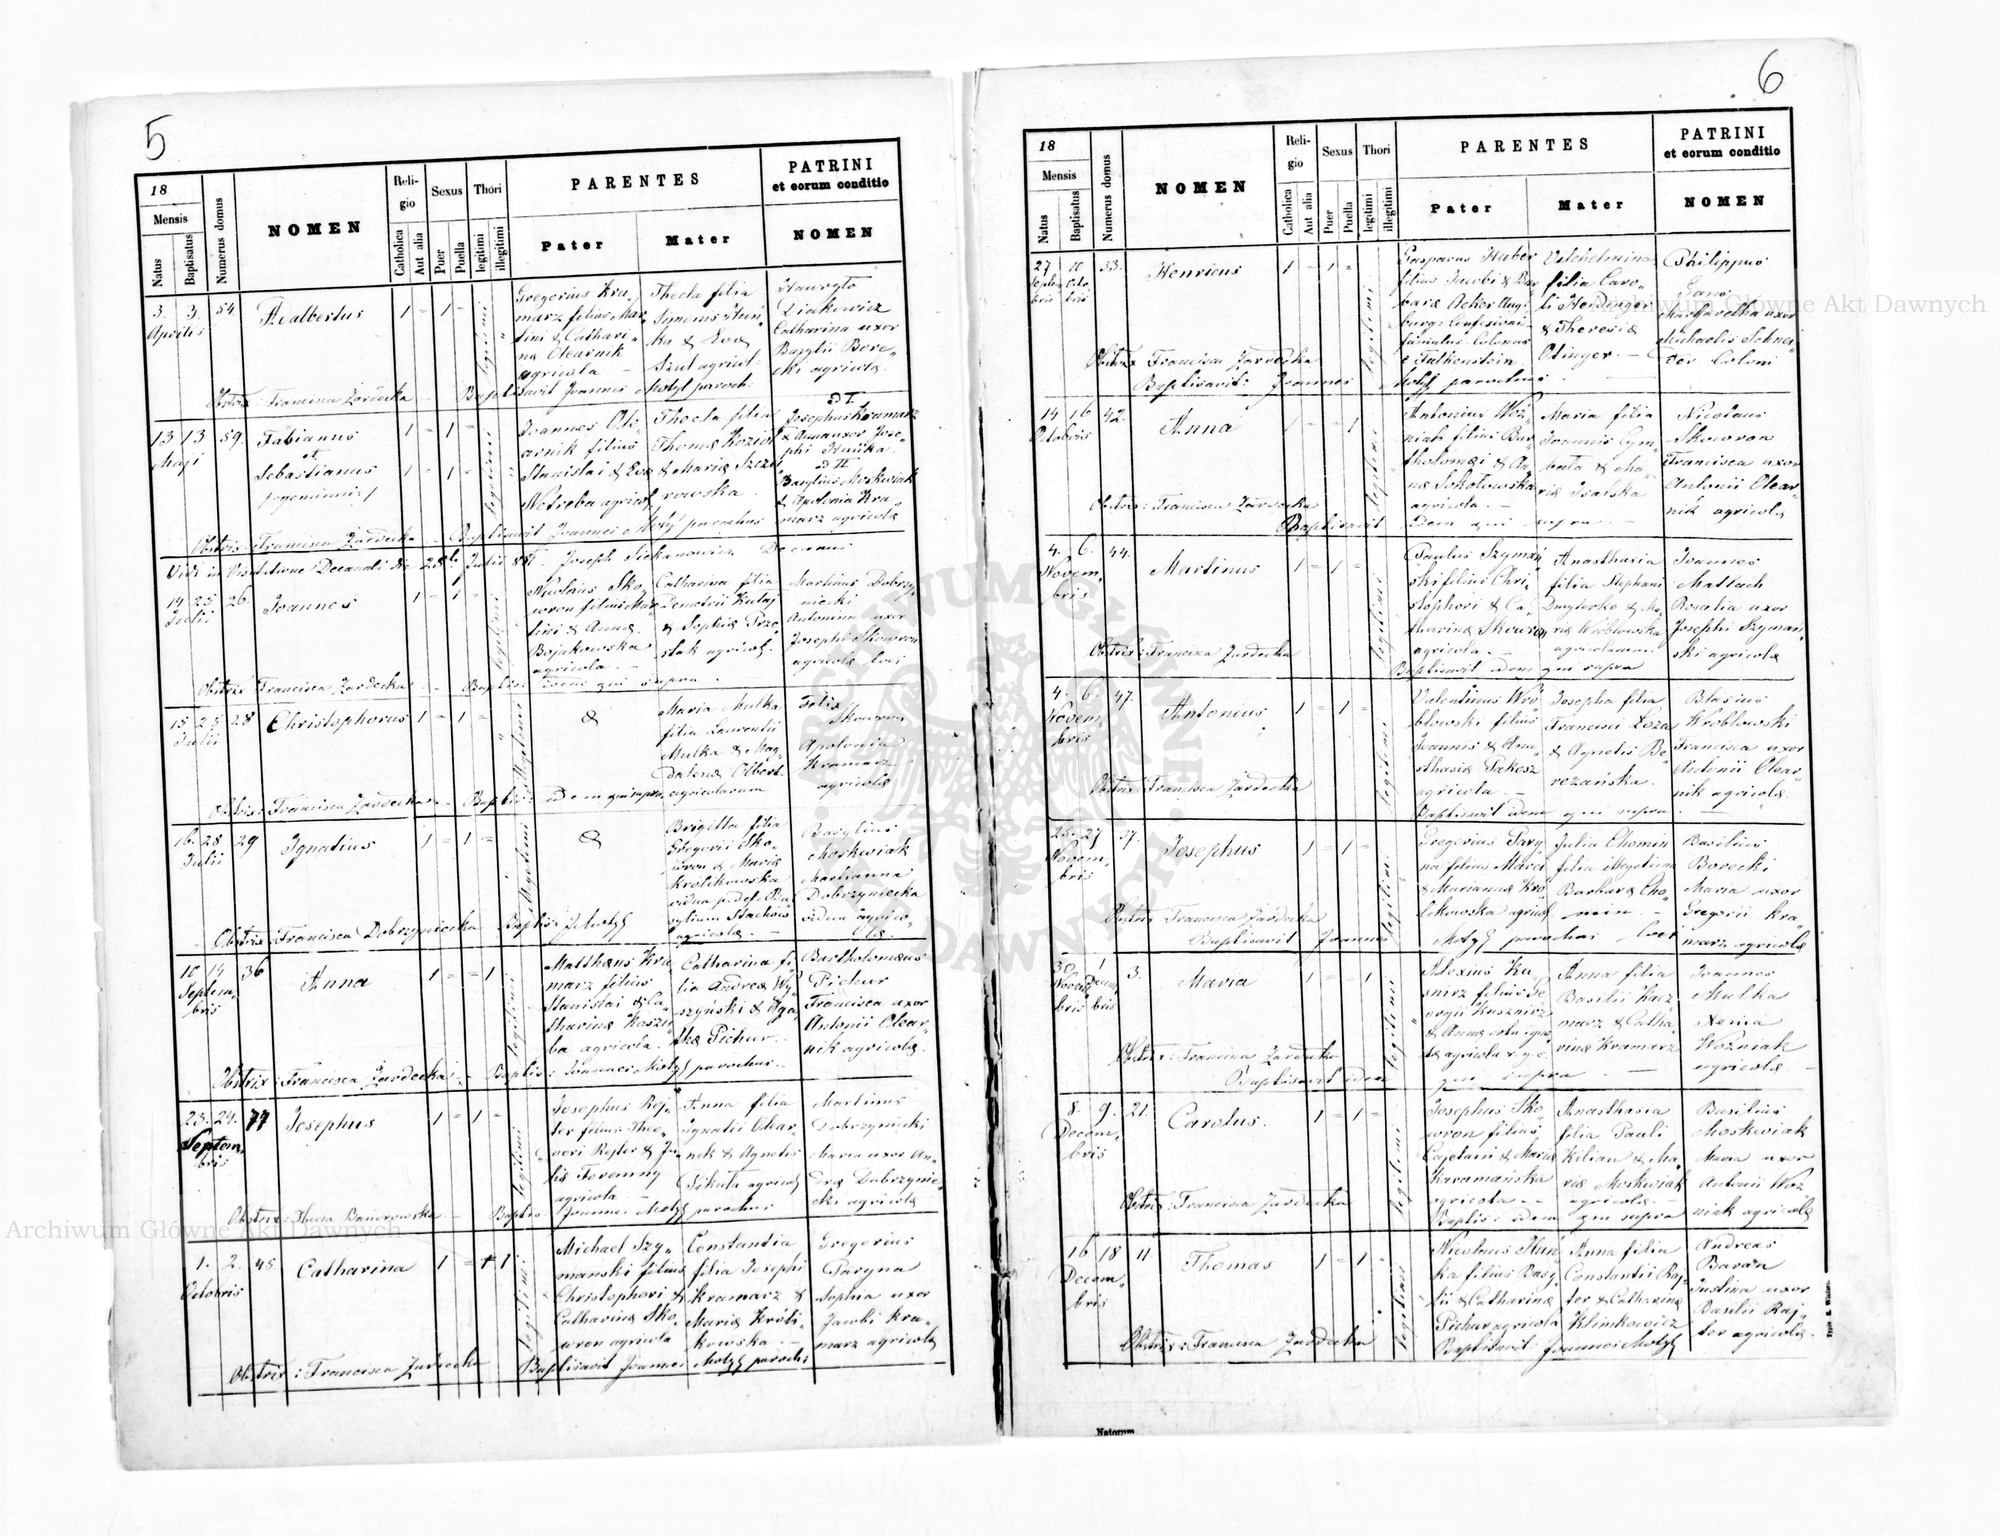 5
18
Mensis
Natus
Baptisatus
Numerus domus
NOMEN
Reli-
gio
Catholica
Aut alia
Sexus
Puer
Puella
Thori
legitimi
illegitimi
PARENTES
Pater
Mater
PATRINI
et eorum conditio
NOMEN
3. 3. 54. Adalbertus 1 - 1 -
Aprilis
legitimi
Gregorius Kra„
marz filius Mar„
tini & Cathari„
na Olearnik
agricola —
Thecla filia
& Eva
Szul agricol:
Hawryło
Diakowicz
Catharina uxor
Basylii Bore„
cki agricolæ.
Obstrix: Francisca Żardecka — Baptisavit Joannes Motyl paroch:
13 13 59. Fabianus 1 - 1 -
Maji
et
Sebastianus 1 - 1 -
/ gemini /
legitimi
Joannes Ole„
arnik filius
Stanislai & Evæ
Netreba agricol.
Thecla filia
Thomæ Kozioł
& Mariæ Szcze
rowska.
ad I.
Josephus Kramarz
& Anna uxor Jose„
phi
ad II
Basylius Moskwiak
& Apolonia Kra„
marz agricolæ
Obstrix: Francisca Żardecka — Baptisavit Joannes Motyl parochus
Vidi in Visitatione Decanali die 28t Julii 881. Joseph Siekanowicz Decanus
14 25 26. Joannes 1 - 1 -
Julii
legitimi
Nicolaus Sko„
wron filius Mar„
tini & Annæ
Bojakowska
agricola. —
Catharina filia
Demetrii Kulaj
& Sophiæ Prze„
stak agricol.
Martinus Dobrzy„
niecki
Antonina uxor
Josephi Skowron
agricolæ loci
Obstrix: Francisca Żardecka — Baptis: Idem qui supra.
15 25 28 Christophorus 1 - 1 -
Julii
illegitimi
&
Maria Mulka
filia Laurentii
Mulka & Mag„
dalenæ Olbert.
agricolarum
Felix
Skowron
Apolonia
Kramarz
agricolæ
Obstrix: Francisca Żardecka — Baptis: idem qui supra.
16. 28 29 Ignatius 1 - 1 -
Julii
illegitimi
&
Brigitta filia
Gregorii Sko„
wron & Mariæ
Królikowska
vidua p. def. Ba„
sylium Stachów
agricolæ. —
Basylius
Moskwiak
Marianna
Dobrzyniecka
vidua agrico„
læ.
Obstrix: Francisca Dobrzyniecka Baptis: J. Motyl
10 14 36 Anna 1 - - 1
Septem„
bris
legitimi
Matthæus Kra„
marz filius
Stanislai & Ca„
tharinæ Kaszu„
ba agricola.
Catharina fi„
lia Andreæ Wy„
szyński & Aga„
thæ Pichur. —
Bartholomæus
Pichur
Francisca uxor
Antonii Olear„
nik agricolæ.
Obstrix: Francisca Żardecka — Baptis: Joannes Motyl parochus.
23. 24. 77 Josephus 1 - 1 -
Septem„
bris
legitimi
Josephus Rej„
ter filius Theo„
dori Rejter & Ju„
liæ Foremny
agricola —
Anna filia
Ignatii Olear„
nik & Agnetis
Sikuta agricol.
Martinus
Dobrzyniecki
Maria uxor An„
dreæ Dobrzynie„
cki agricolæ
Obstrix: Thecla Banerowska — Baptis: Joannes Motyl parochus
1. 2. 45. Catharina 1 - - 1
Octobris
legitimi
Michael Szy„
mański filius
Christophori &
Catharinæ Sko„
wron agricola
Constantia
filia Josephi
Kramarz &
Mariæ Króli„
kowska —
Gregorius
Paryna
Sophia uxor
Jacobi Kra„
marz agricolæ
Obstrix: Francisca Żardecka Baptisavit Joannes Motyl paroch:
6
18
Mensis
Natus
Baptisatus
Numerus domus
NOMEN
Reli-
gio
Catholica
Aut alia
Sexus
Puer
Puella
Thori
legitimi
illegitimi
PARENTES
Pater
Mater
PATRINI
et eorum conditio
NOMEN
27 10 33. Henricus 1 - 1 -
Septem
bris
Octo
bris
legitimi
Gasparus Huber
filius Jacobi & Bar
baræ Acker Aug:
burg: Confesionis
famulus Colonus
e Falkenstein
Vilhelmina
filia Caro„
li Heidinger
& Theresiæ
Olinger. —
Philippus
Gans
Margaretha uxor
Michaelis Schnei
der Coloni
Obstrix Francisca Żardecka
Baptisavit: Joannes Motyl parochus
14 16 42. Anna 1 - - 1
Octobris
legitimi
Antonius Woź„
niak filius Bar„
tholomæi & An„
næ Sokołowska
agricola. —
Maria filia
Joannis Cym„
bała & Ma„
riæ
Nicolaus
Skowron
Francisca uxor
Antonii Olear„
nik agricolæ
Obstrix: Francisca Żardecka
Baptisavit Idem qui supra —
4. 6. 44. Martinus 1 - 1 -
Novem„
bris
legitimi
Paulus Szymań„
ski filius Chri„
stophori & Ca„
tharinæ Skowron
agricola. —
Anasthasia
filia Stephani
Dmyterko & Ma„
riæ Wróblowska
agricolarum.
Joannes
Matlach
Rosalia uxor
Josephi Szymań„
ski agricolæ
Obstrix: Francisca Żardecka
Baptisavit idem qui supra
4. 6. 47. Antonius 1 - 1 -
Novem„
bris
legitimi
Valentinus Wró„
blowski filius
Joannis & Ana„
sthasiæ
agricola. —
Josepha filia
Francisci Łoza
& Agnetis Be„
rezańska.
Blasius
Wróblowski
Francisca uxor
Antonii Olear„
nik agricolæ.
Obstrix: Francisca Żardecka
Baptisavit idem qui supra —
25. 27 37. Josephus 1 - 1 -
Novem„
bris
legitimi
Gregorius Pary„
na filius Marci
& Mariannæ Kró„
likowska agricol.
Julia Chomin
filia illegitima
Barbaræ Cho„
min. —
Basilius
Borecki
Maria uxor
Gregorii Kra„
marz agricolæ
Obstrix: Francisca Żardecka
Baptisavit Joannes Motyl parochus loci
30 1 3. Maria 1 - - 1
Novem
bris
Decem
bris
legitimi
Alexius Ku„
śnirz filius Ge„
orgii Kuśnirz
Anna filia
Basilii Kra„
marz & Catha„
rinæ Kramarz
Joannes
Mulka
Xenia
Woźniak
agricolæ —
Obstrix: Francisca Żardecka
Baptisavit idem qui supra
8. 9. 21. Carolus. 1 - 1 -
Decem„
bris
legitimi
Josephus Sko„
wron filius
Cajetani & Mariæ
Karamańska
agricola —
Anasthasia
filia Pauli
Kilian & Ma„
riæ Moskwiak
agricolæ. —
Basilius
Moskwiak
Maria uxor
Antonii Woź
niak agricolæ
Obstrix: Francisca Żardecka
Baptis: idem qui supra
16 18 11. Thomas 1 - 1 -
Decem„
bris
legitimi
Nicolaus
filius Basy„
lii & Catharinæ
Pichur agricola
Anna filia
Constantii Raj„
ter & Catharinæ
Klimkowicz
Andreas
Baran
Justina uxor
Basilii Raj„
ter agricolæ.
Obstrix: Francisca Żardecka
Baptisavit: Joannes Motyl
Typis E. Winiarz
Natorum
Archiwum Główne Akt Dawnych
Archiwum Główne Akt Dawnych
ARCHIWUM GŁÓWNE AKT DAWNYCH